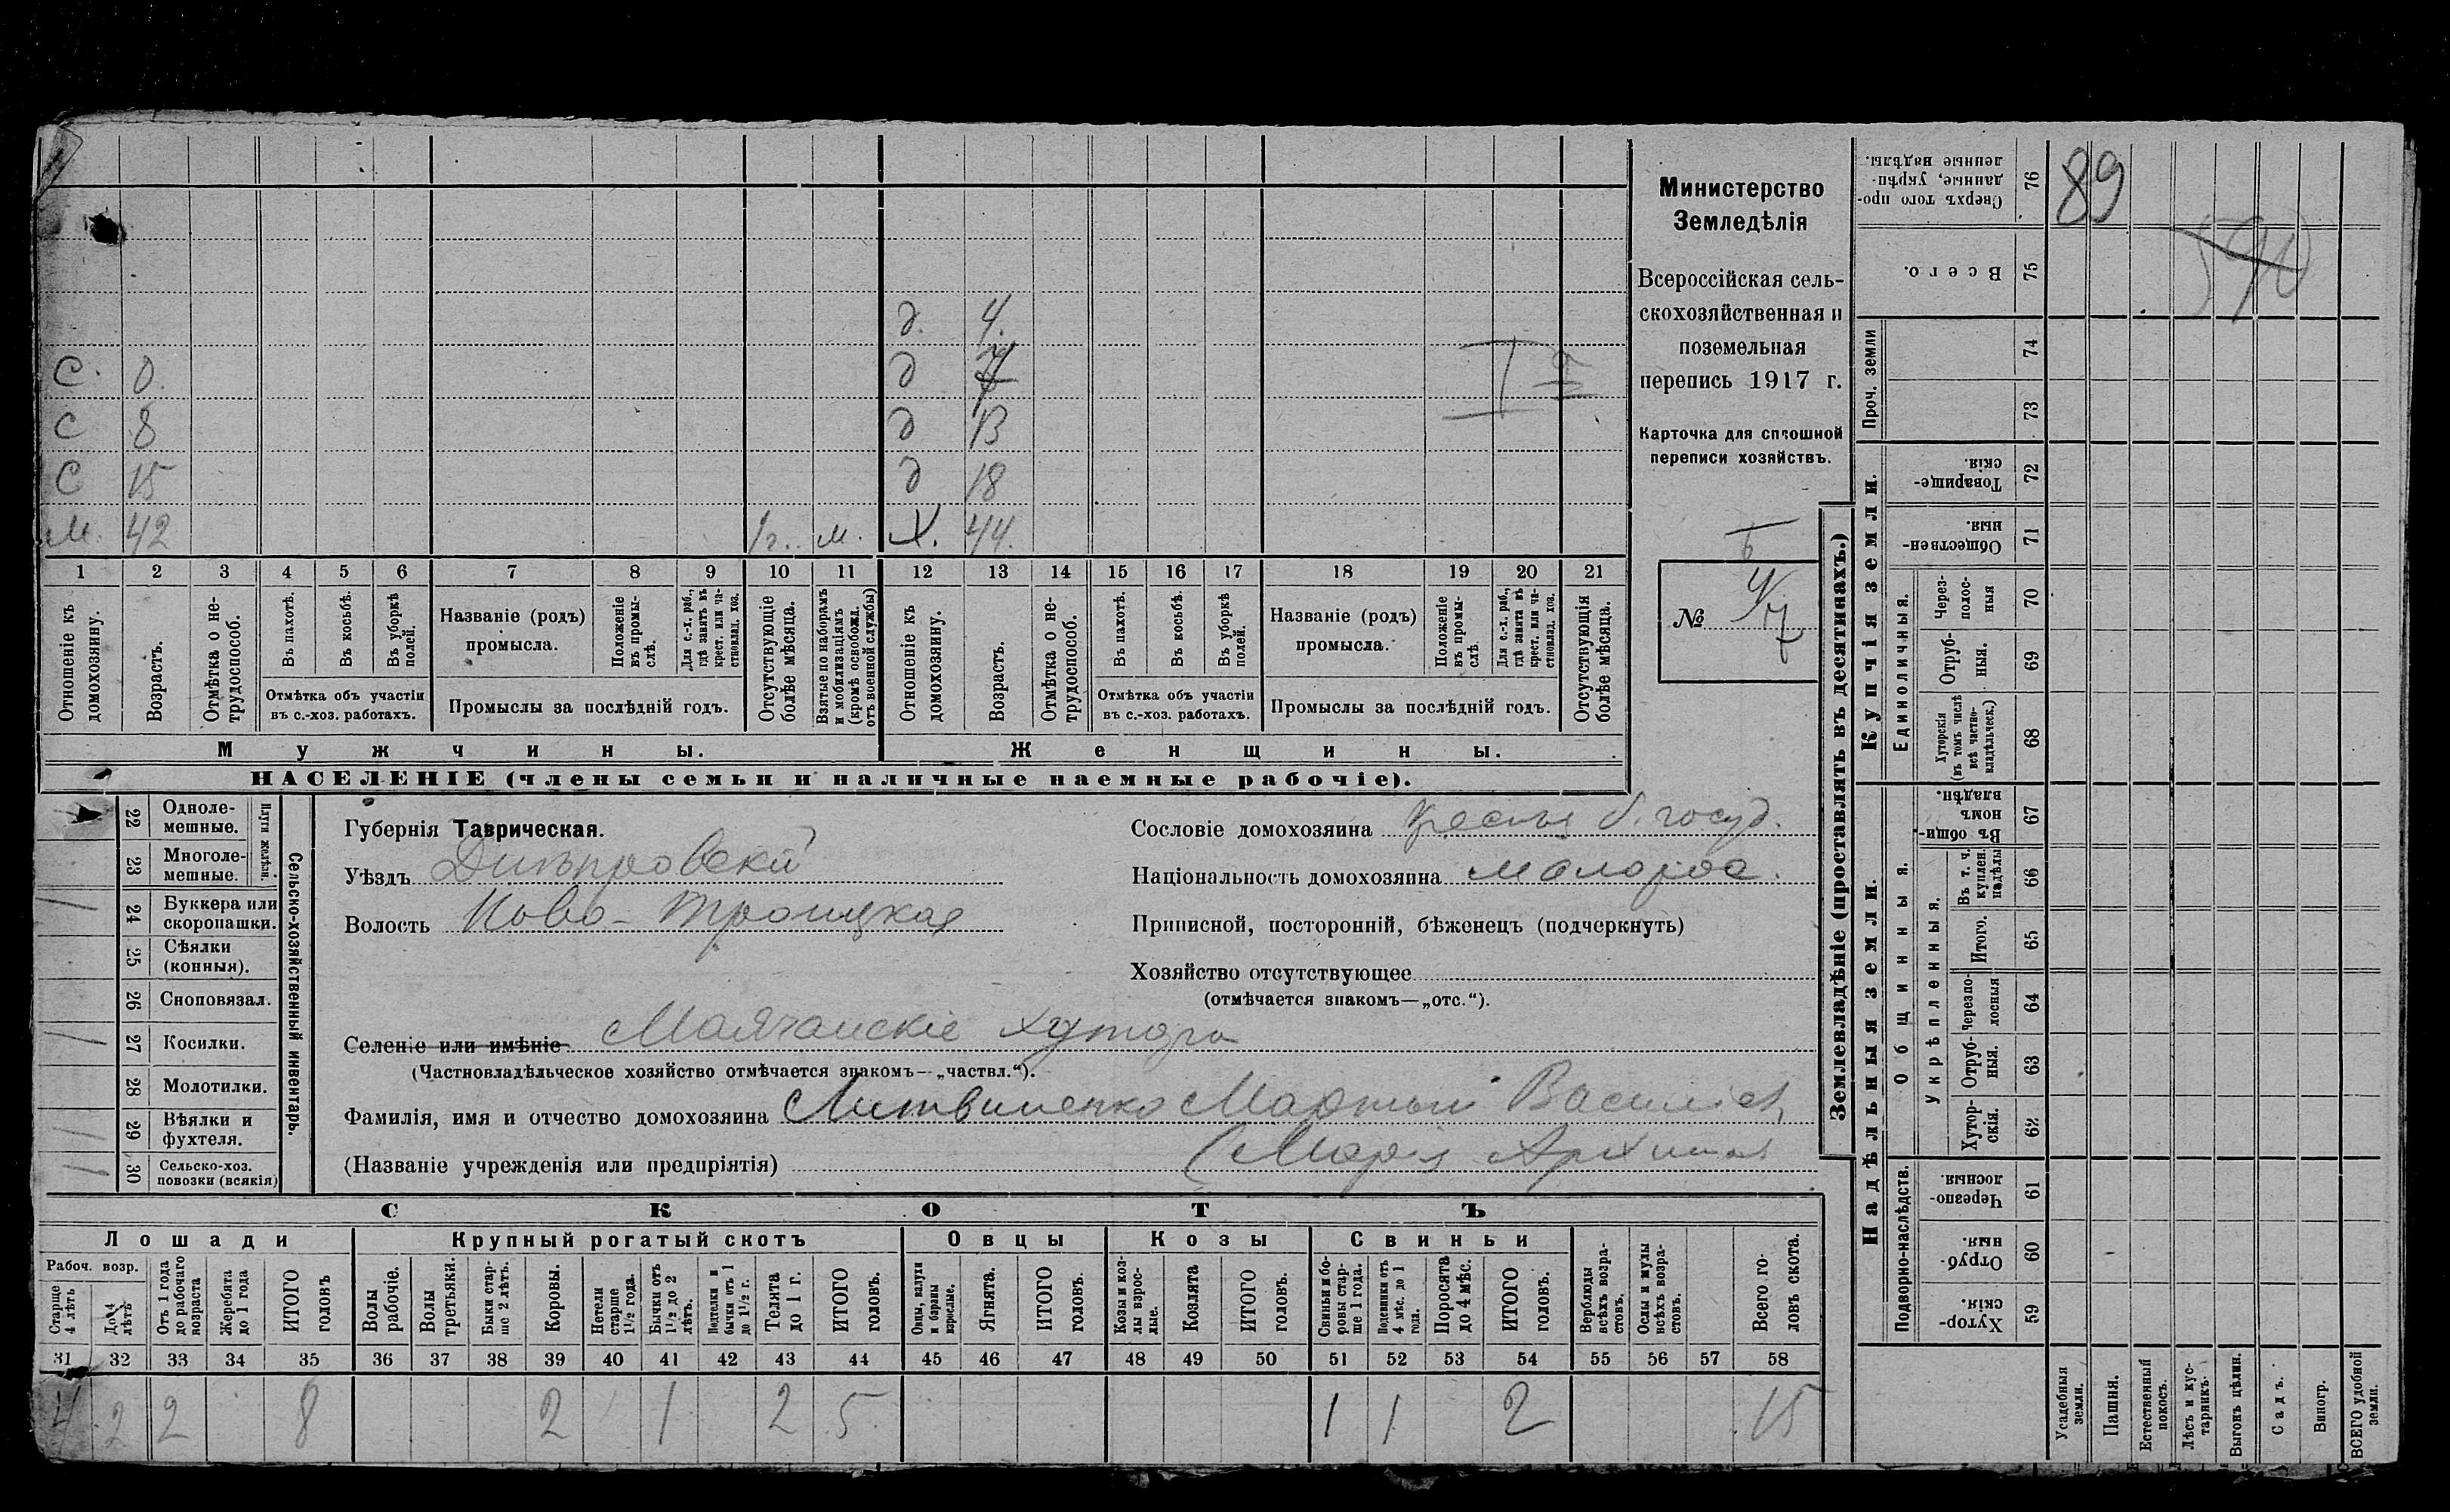 С. 0.
С 8
С 15
М. 42 1 г. м.
д. 4.
д
д 13
д 18
Х. 44.
1 2 3 4 5 6 7 8 9 10 11 12 13 14 15 16 17 18 19 20 21
Отношеніе къ домохозяину.
Возрастъ.
Отмѣтка о не-трудоспособ.
Въ пахотѣ.
Въ косьбѣ.
Въ уборкѣ полей.
Отмѣтка объ участіи
въ с.-хоз. работахъ.
Названіе (родъ)
промысла.
Положеніе въ промы-слѣ.
Для с.-х. раб., гдѣ занятъ въ крест. или ча-стновлад. хоз.
Промыслы за послѣдній годъ.
Отсутствующіе болѣе мѣсяца.
Взятые по наборамъ и мобилизаціямъ (кромѣ освобожд. отъ военной службы)
Отношеніе къ домохозяину.
Возрастъ.
Отмѣтка о не-трудоспособ.
Въ пахотѣ.
Въ косьбѣ.
Въ уборкѣ полей.
Отмѣтка объ участіи
въ с.-хоз. работахъ.
Названіе (родъ)
промысла.
Положеніе въ промы-слѣ.
Для с.-х. раб., гдѣ занята въ крест. или ча-стновлад. хоз.
Промыслы за послѣдній годъ.
Отсутствующія болѣе мѣсяца.
Мужчины.
Женщины.
НАСЕЛЕНІЕ (члены семьи и наличные наемные рабочіе).
Министерство
Земледѣлія
Всероссійская сель-
скохозяйственная и
поземельная
перепись 1917 г.
Карточка для сплошной
переписи хозяйствъ.
№
22 Одноле-мешные.
23 Многоле-мешные.
Плуги желѣзн.
24 Буккера или скоропашки.
25 Сѣялки (конныя).
26 Сноповязал.
27 Косилки.
28 Молотилки.
29 Вѣялки и фухтеля.
30 Сельско-хоз. повозки (всякія)
Сельско-хозяйственный инвентарь.
Губернія Таврическая.
Уѣздъ Днѣпровскій
Волость Ново-Троицкая
Сословіе домохозяина крестья б. госуд.
Національность домохозяина малорос.
Приписной, посторонній, бѣженецъ (подчеркнуть)
Хозяйство отсутствующее
(отмѣчается знакомъ—„отс.“).
Селеніе или имѣніе Маячанскіе хутора
(Частновладѣльческое хозяйство отмѣчается знакомъ—„частвл.“).
Фамилія, имя и отчество домохозяина Литвиненко Мартын
(Названіе учрежденія или предпріятія) (Марія
СКОТЪ
Лошади Крупный рогатый скотъ Овцы Козы Свиньи
Рабоч. возр.
Старше 4 лѣтъ
До 4 лѣтъ
Отъ 1 года до рабочаго возраста
Жеребята до 1 года
ИТОГО головъ
Волы рабочіе.
Волы третьяки.
Быки стар-ше 2 лѣтъ.
Коровы.
Нетели старше 1½ года.
Бычки отъ 1½ до 2 лѣтъ.
Подтелки и бычки отъ 1 до 1½ г.
Телята до 1 г.
ИТОГО головъ.
Овцы, валухи и бараны взрослые.
Ягнята.
ИТОГО головъ.
Козы и коз-лы взрос-лые.
Козлята
ИТОГО головъ.
Свиньи и бо-ровы стар-ше 1 года.
Подсвинки отъ 4 мѣс. до 1 года.
Поросята до 4 мѣс.
ИТОГО головъ.
Верблюды всѣхъ возра-стовъ.
Ослы и мулы всѣхъ возра-стовъ.
Всего го-ловъ скота.
31 32 33 34 35 36 37 38 39 40 41 42 43 44 45 46 47 48 49 50 51 52 53 54 55 56 57 58
4 2 2 8 2 1 2 5 1 1 2 15
Землевладѣніе (проставлять въ десятинахъ.)
Купчія земли.
Надѣльныя земли.
Сверхъ того про-данные, укрѣп-ленные надѣлы. 76
89
Всего. 75
Проч. земли 74 73
Товарище-скія. 72
Обществен-ныя. 71
Единоличныя.
Через-полос-ныя 70
Отруб-ныя. 69
Хуторскія (въ томъ числѣ всѣ частно-владѣльческ.) 68
Общинныя.
Въ общи-номъ владѣн. 67
Укрѣпленныя.
Въ т. ч. куплен. надѣлы 66
Итого. 65
Черезпо-лосныя 64
Отруб-ныя. 63
Хутор-скія. 62
Подворно-наслѣдств.
Черезпо-лосныя. 61
Отруб-ныя. 60
Хутор-скія. 59
Усадебныя земли.
Пашня.
Естественный покосъ.
Лѣсъ и кус-тарникъ.
Выгонъ цѣлин.
Садъ.
Виногр.
ВСЕГО удобной земли.